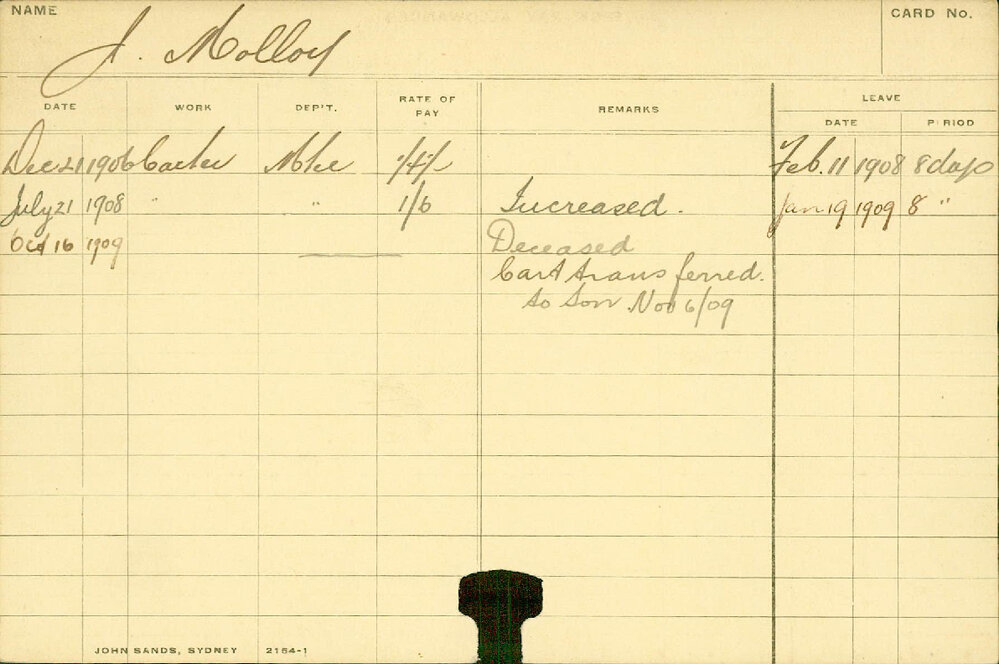 NAME
CARD No.
J. Molloy
DATE WORK DEP'T. RATE OF PAY REMARKS LEAVE
DATE PERIOD
Dec 21 1906 Carter Mkt Feb. 11 1908 8 days
July 21 1908 " " 1/6 Increased. Jan 19 1909 8 "
Oct 16 1909 Deceased
Cart transferred.
to Son Nov 6/09
JOHN SANDS, SYDNEY 2154-1